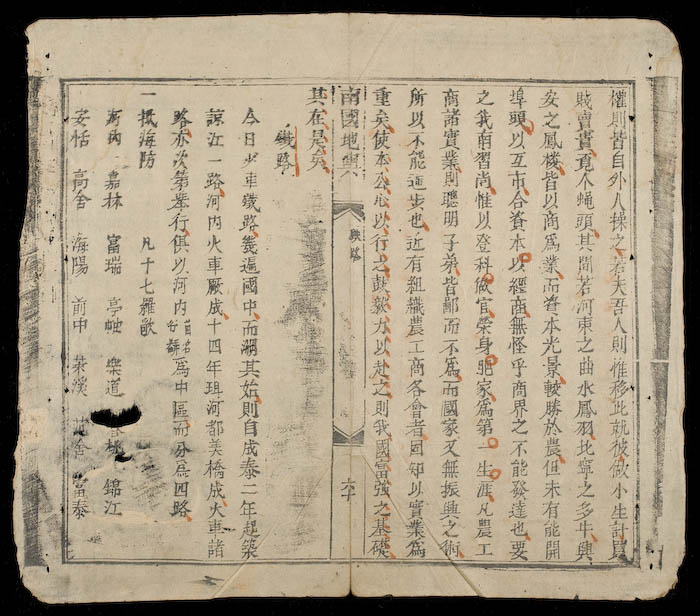 權則皆自外人操之若夫吾人則惟移此就彼做小生計買
賤賣貴覓个蝇頭其間若河東之曲水鳳羽北寧之多牛與
安之鳳機皆以商爲業而資本光景較勝於農但未有能開
埠頭以互市合資本以經商無怪乎商界之不能發達也要
之我南習尚惟以登科做官榮身肥家爲第一生涯凡農工
商諸實業則聰明子弟皆鄙而不爲而國家又無振興之術
所以不能進步也近有組織農工商各會者固知以實業爲
重矣使本公心以行之鼓毅力以赴之則我國富強之基礎
其在是矣
南國地輿
鉄路
六十
鐵路
今日火車鐵路幾遍國中而溯其始則自成泰二年起築
諒江一路河内火車厰成十四年珥河都美橋成火車諸
路亦次第舉行俱以河内爲中區而分爲四路
一 抵海防 凡十七羅歌
河内 嘉林 富瑞 樂道 錦江
安恬 高舍 海陽 前中 富泰